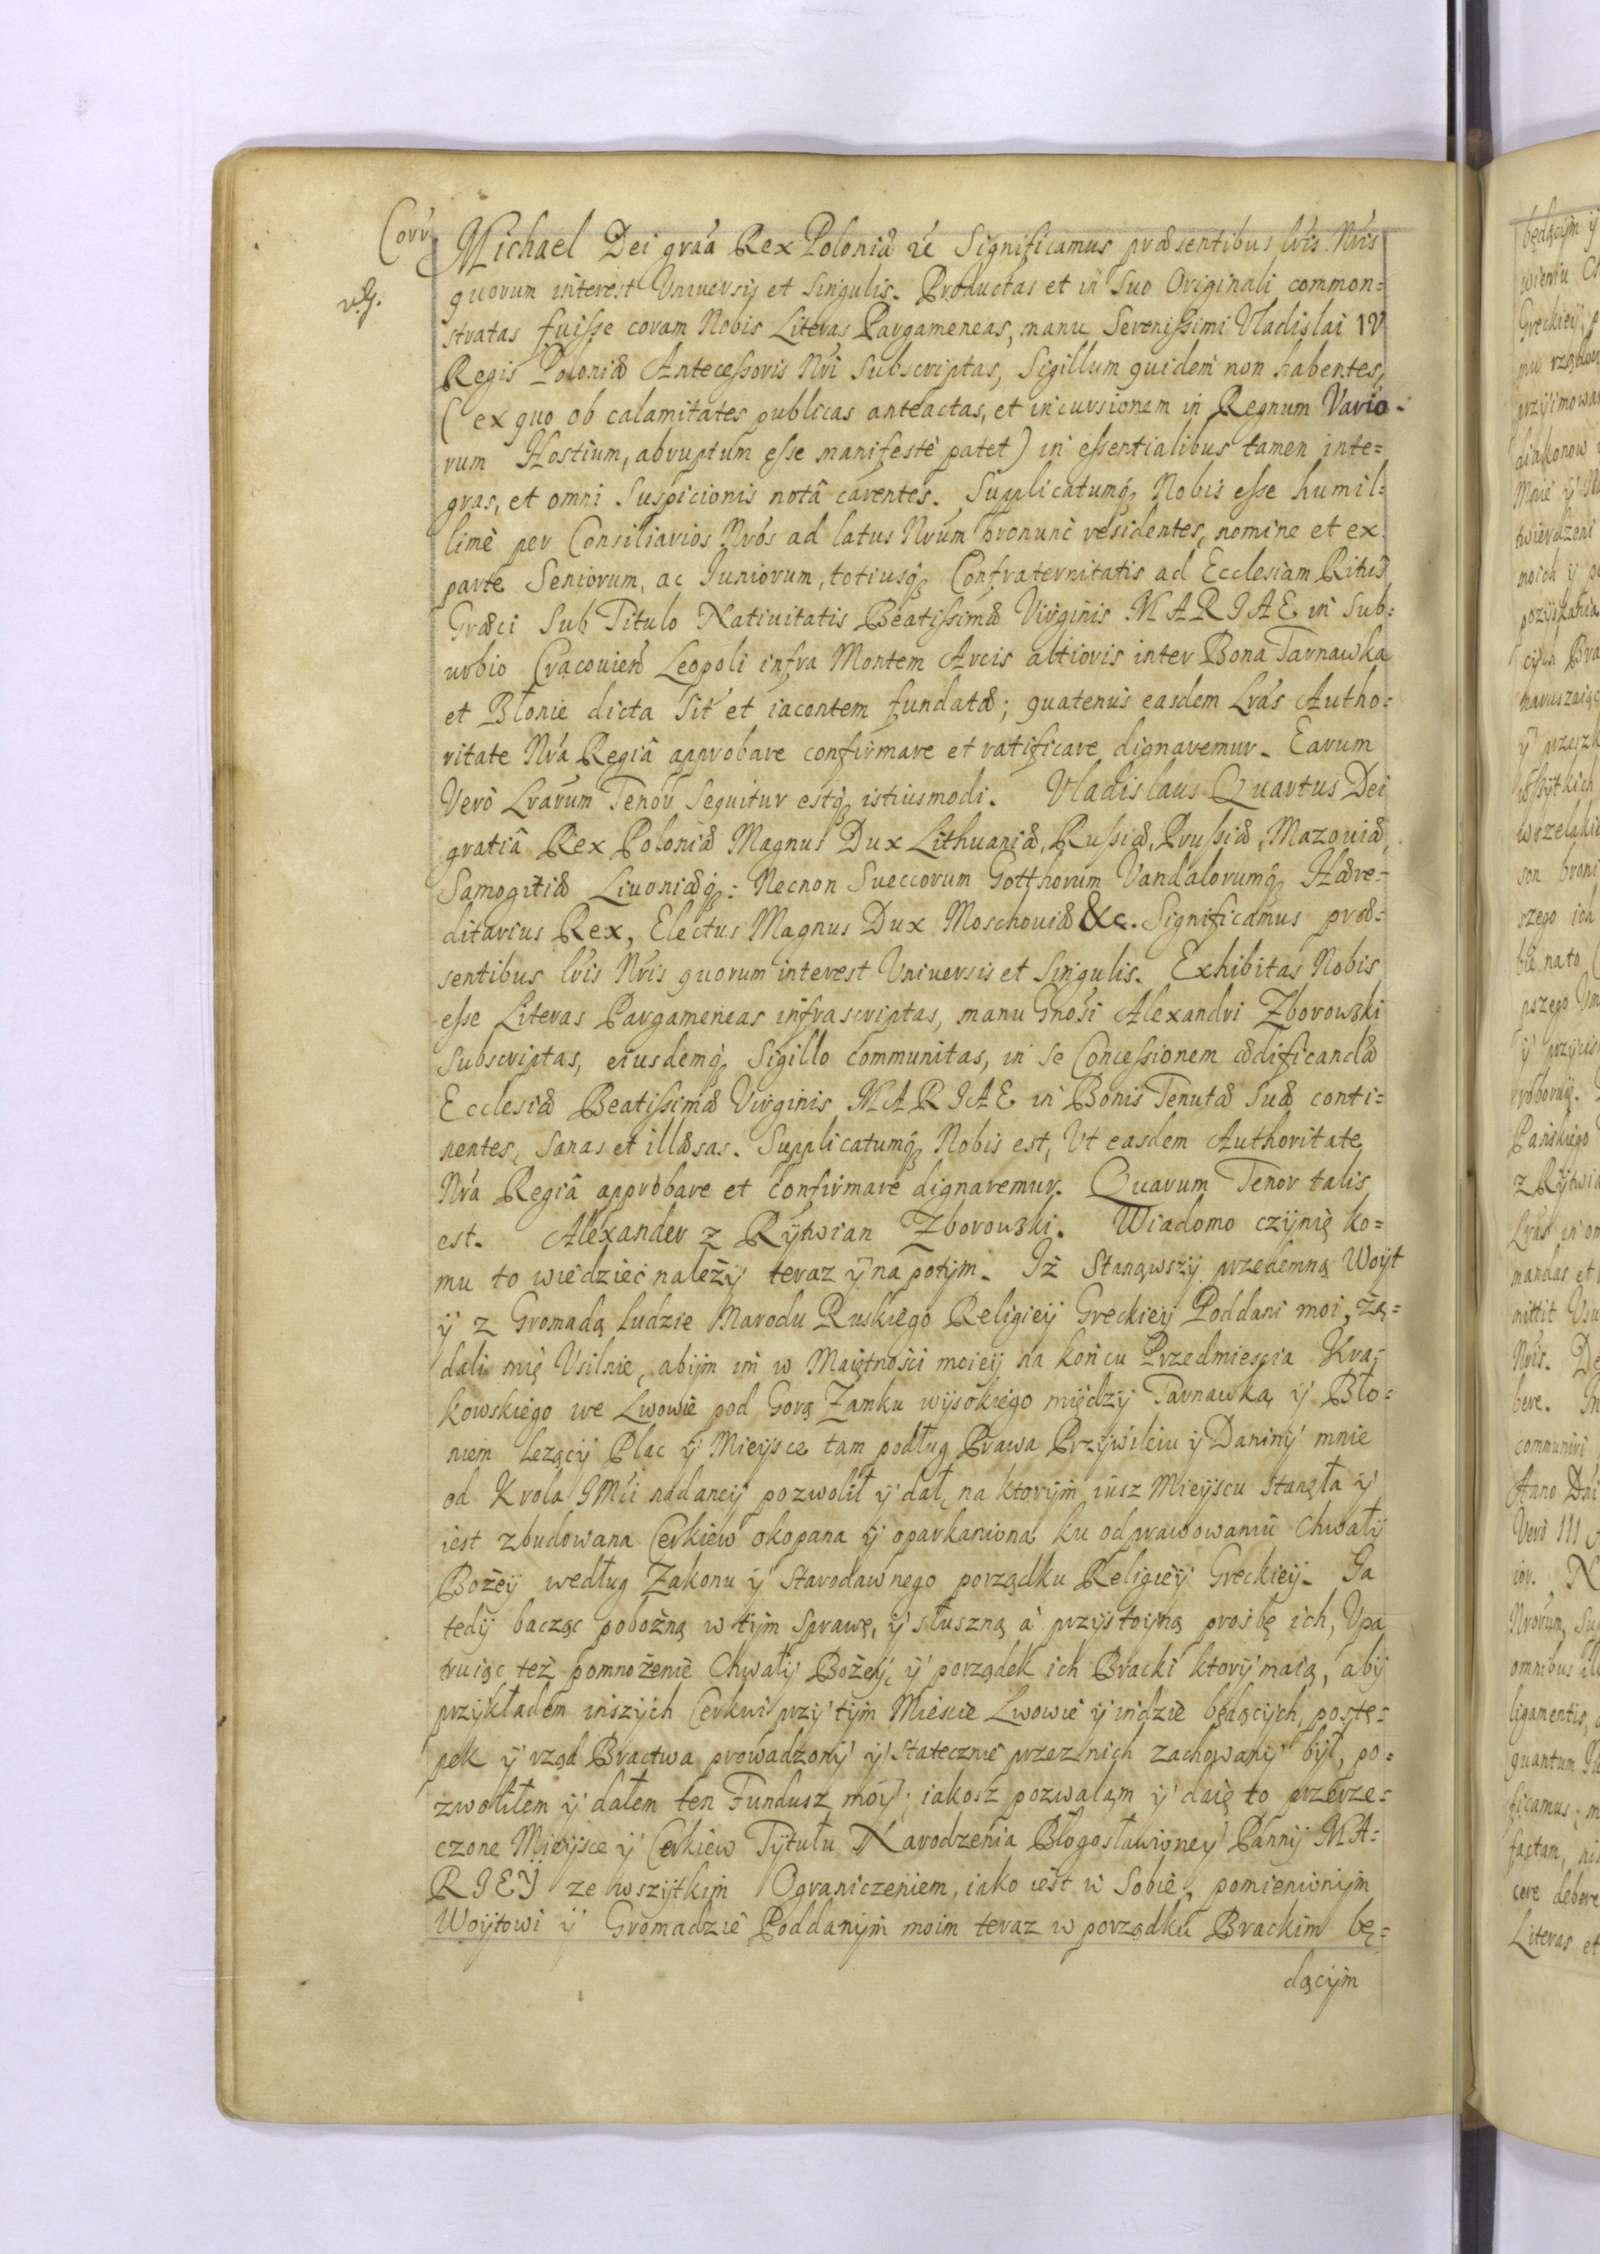 Corr
v. G.
Michael Dei gra'a Rex Poloniæ &c Significamus præsentibus lr'is Nr'is
quorum interest Universis et Singulis. Productas et in Suo Originali common=
stratas fuisse coram Nobis Literas Pargameneas, manu Serenissimi Vladislai IV
Regis Poloniæ Antecessoris Nr'i Subscriptas, Sigillum quidem non habentes,
(ex quo ob calamitates publicas anteactas, et incursionem in Regnum Vario-
rum Hostium, abruptum esse manifestè patet) in essentialibus tamen inte=
gras, et omni Suspicionis notâ carentes. Supplicatumq3 Nobis esse humil=
limè per Consiliarios Nr'os ad latus Nr'um pronunc residentes, nomine et ex
parte Seniorum, ac Iuniorum, totiusq3 Confraternitatis ad Ecclesiam Ritus
Græci Sub Titulo Nativitatis Beatissimæ Virginis MARIAE in Sub=
urbio Cracovien Leopoli infra Montem Arcis altioris inter Bona Tarnawka
et Błonie dicta Sit' et iacentem fundatæ; quatenus easdem Lr'as Autho=
ritate Nr'a Regiâ approbare confirmare et ratificare dignaremur. Earum
Verò Lr'arum Tenor Sequitur estq3 istiusmodi. Vladislaus Quartus Dei
gratiâ Rex Poloniæ Magnus Dux Lithuaniæ, Russiæ, Prussiæ, Mazoviæ,
Samogitiæ Livoniæq3: Necnon Sueccorum Gotthorum Vandalorumq3 Hære=
ditarius Rex, Electus Magnus Dux Moschoviæ &c. Significamus præ=
sentibus lr'is Nr'is quorum interest Universis et Singulis. Exhibitas Nobis
esse Literas Pargameneas infrascriptas, manu Gnosi Alexandri Zborowski
Subscriptas, eiusdemq3 Sigillo communitas, in se Concessionem ædificandæ
Ecclesiæ Beatissimæ Virginis MARIAE in Bonis Tenutæ Suæ conti=
nentes, Sanas et illæsas. Supplicatumq3 Nobis est, Vt easdem Authoritate
Nr'a Regiâ approbare et confirmare dignaremur. Quarum Tenor talis
est. Alexander z Rÿtwian Zborowski. Wiadomo czÿnię ko=
mu to wiedzieć należÿ teraz ÿ na potÿm. Iż Stanąwszÿ przedemną Woÿt
ÿ z Gromadą ludzie Narodu Ruskiego Religieÿ Greckieÿ Poddani moi, żą=
dali mię Usilnie, abÿm im w Maiętności moieÿ na końcu Przedmieścia Kra=
kowskiego we Lwowie pod Gorą Zamku wysokiego międzÿ Tarnawką ÿ Bło=
niem lezącÿ Plac ÿ Mieÿsce tam podług Prawa Przÿwileiu ÿ Daninÿ mnie
od Krola IMci nadaneÿ pozwolił ÿ dał, na ktorÿm iusz Mieÿscu Stanęła ÿ
iest zbudowana Cerkiew okopana ÿ oparkaniona ku odprawowaniu Chwałÿ
Bożeÿ według Zakonu ÿ Starodawnego porządku Religieÿ Greckieÿ. Ia
tedÿ bacząc pobożną w tÿm Sprawę, ÿ słuszną á przÿstoÿną proibę ich, Upa
truiąc też pomnożenie Chwałÿ Bożeÿ, ÿ porządek ich Bracki ktorÿ maią, abÿ
przÿkładem inszÿch Cerkwi przÿ tÿm Mieście Lwowie ÿ indzie będącÿch, postę=
pek ÿ rząd Bractwa prowadzonÿ ÿ Statecznie przez nich zachowanÿ bÿł, po=
zwoliłem ÿ dałem ten Fundusz móÿ; iakosz pozwalam ÿ daię to przerze=
czone Mieÿsce ÿ Cerkiew Tÿtułu Narodzenia Błogosławioneÿ Pannÿ MA=
RIEŸ ze wszÿtkim Ograniczeniem, iako iest w Sobie, pomienionÿm
Woÿtowi ÿ Gromadzie Poddanÿm moim teraz w porządku Brackim bę=
dącÿm